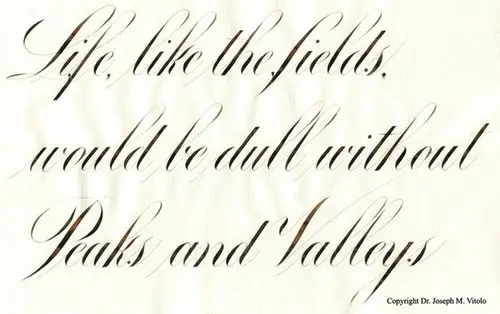 Life, like the fields,
would be dull without
Peaks and Valleys
Copyright Dr. Joseph M. Vitolo